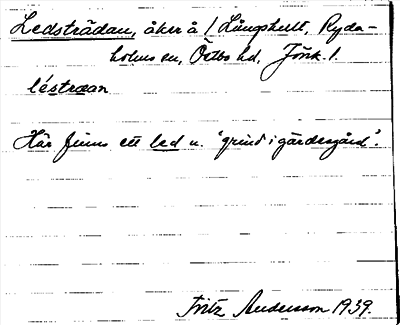 Ledsträdan, åker å 1 Långhult, Ryda-
holms sn, Östbo hd, Jönk. l.
léstræan
Här finns ett led n. 'grind i gärdesgård'.
Fritz Andersson 1939.